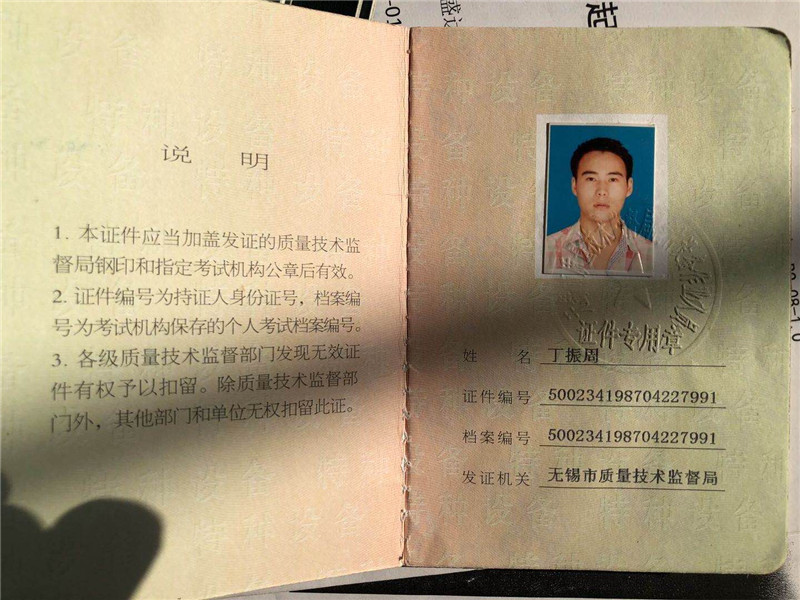 说 明
1. 本证件应当加盖发证的质量技术监
督局钢印和指定考试机构公章后有效。
2. 证件编号为持证人身份证号，档案编
号为考试机构保存的个人考试档案编号。
3. 各级质量技术监督部门发现无效证
件有权予以扣留。除质量技术监督部
门外，其他部门和单位无权扣留此证。
起
-01
特种设备
证件专用章
姓 名 丁振周
证件编号 500234198704227991
档案编号 500234198704227991
发证机关 无锡市质量技术监督局